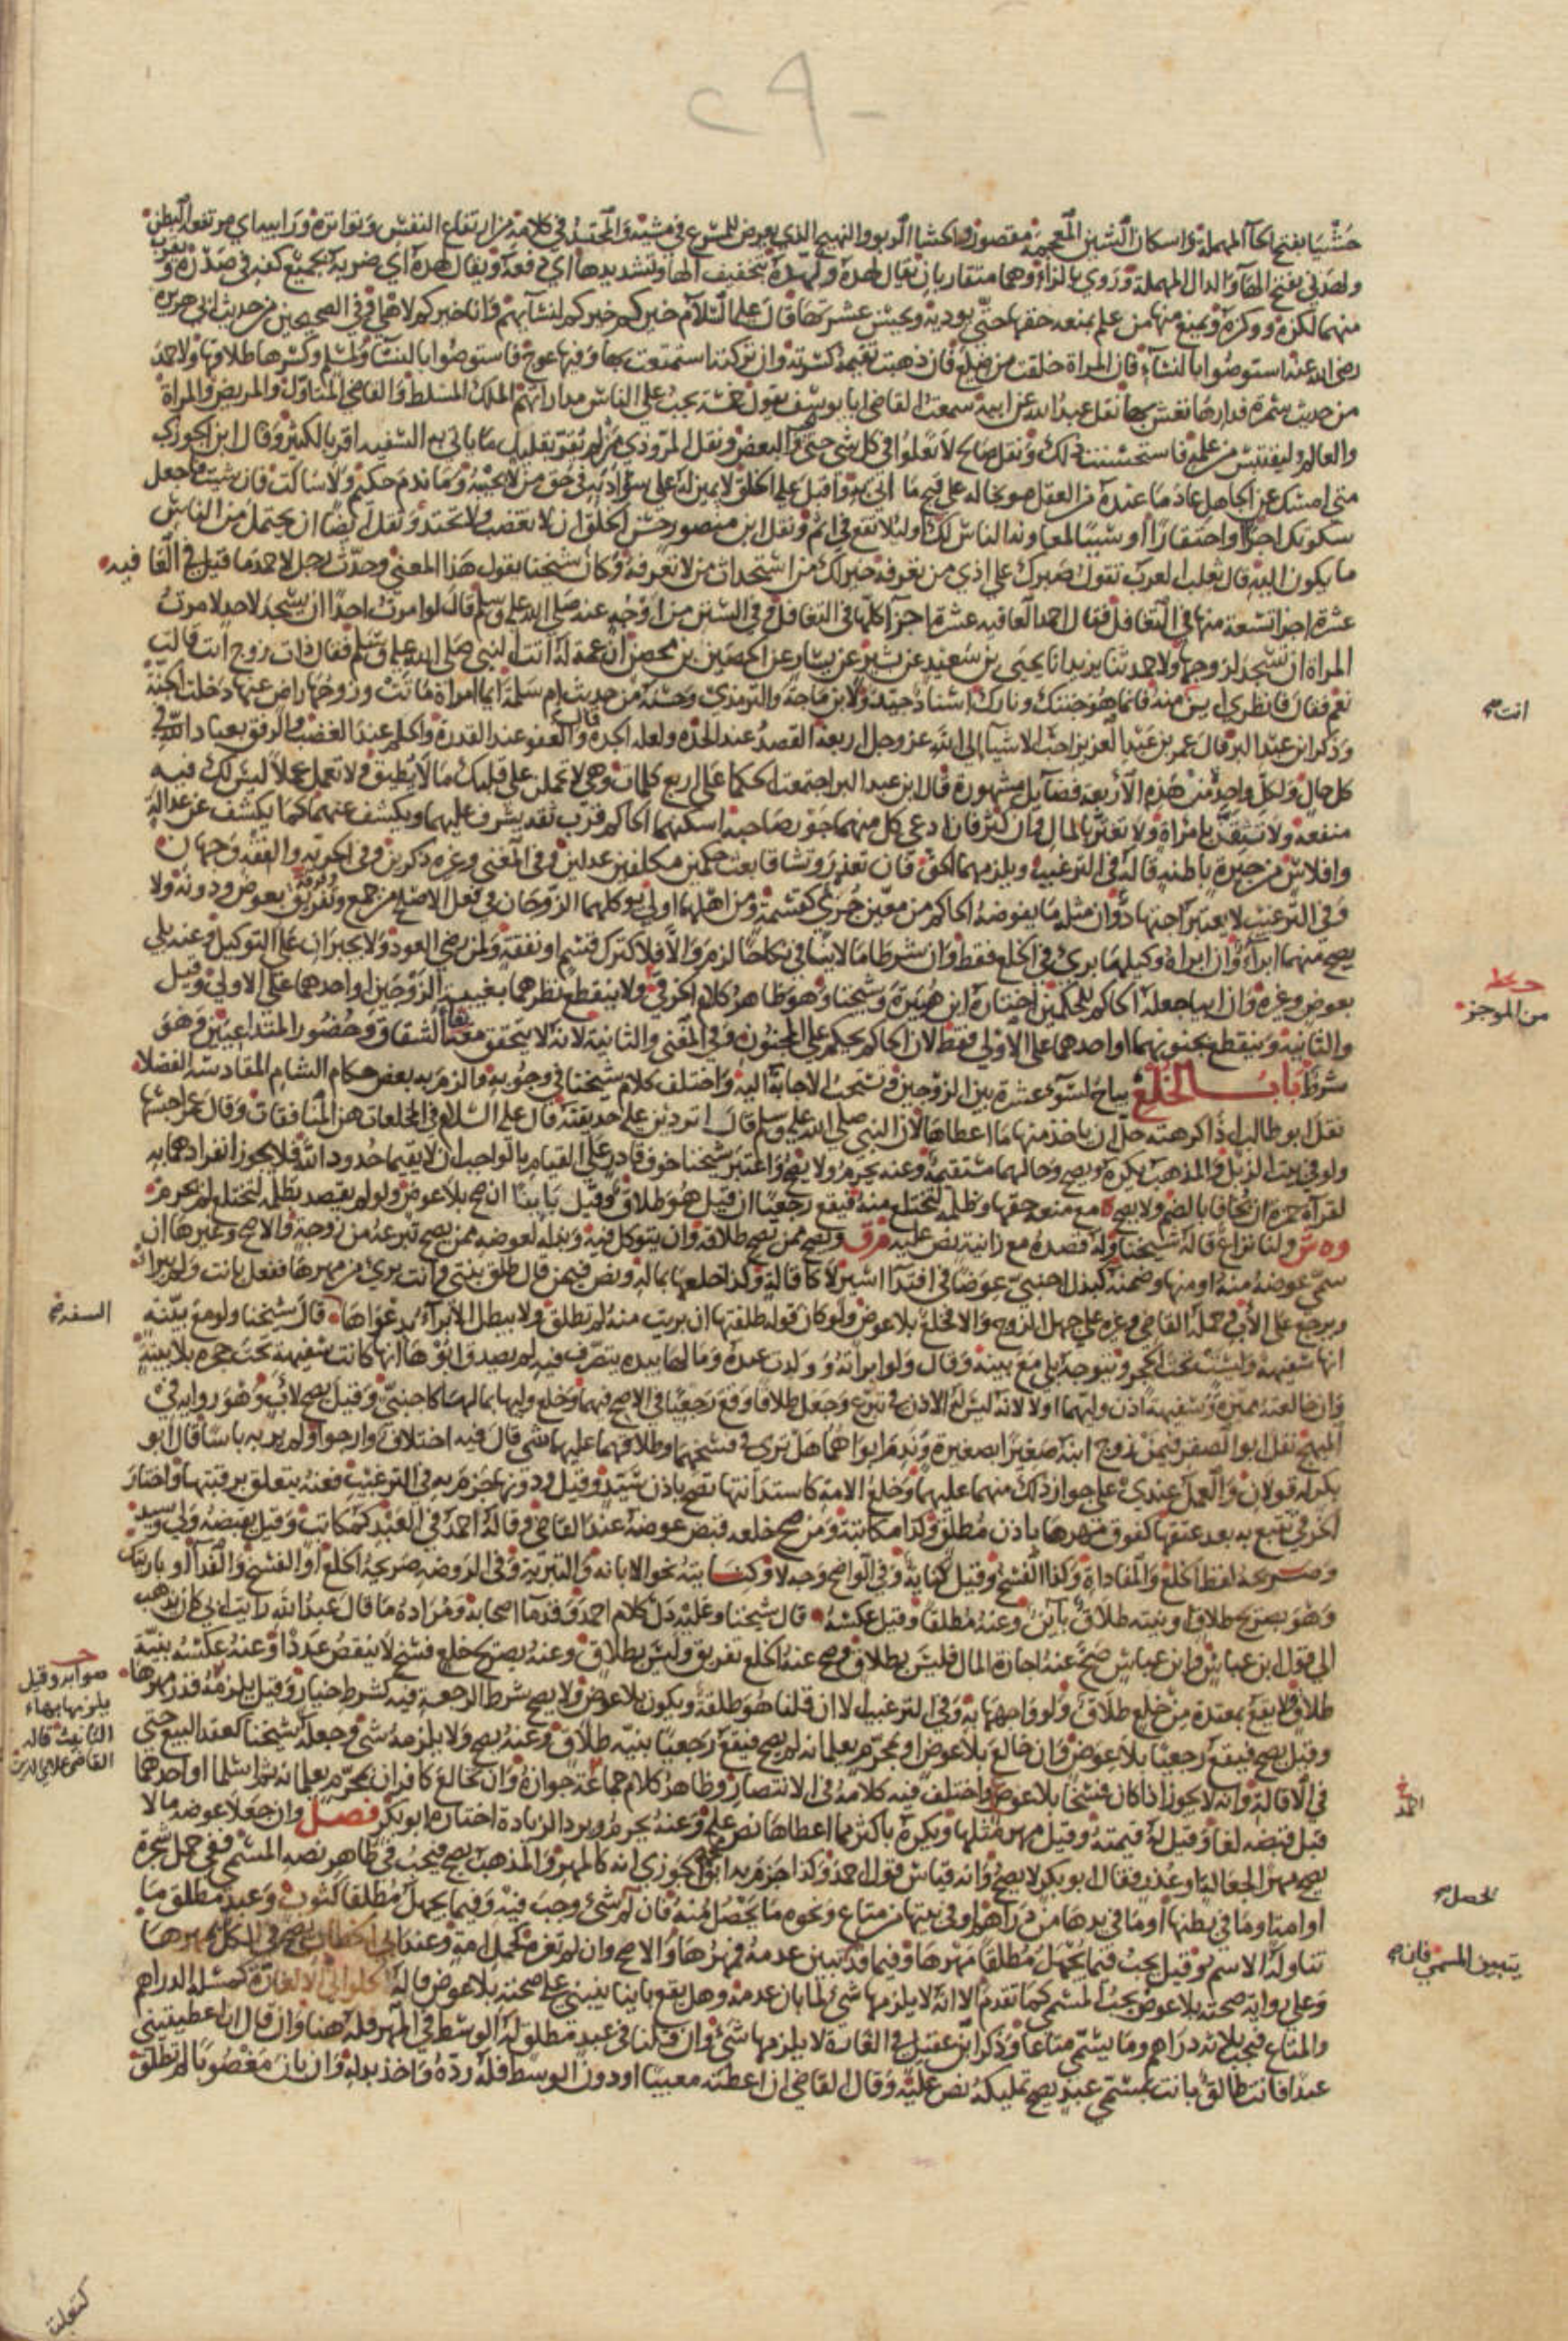 حشيا بفتح الحاء المهملة واسكان الشين المعجمة مقصور والحشا الربو والنهيج الذي يعرض للمسرع في مشيه والمحتد في كلامه من ارتفاع النفس وتواتره ورابية اي مرتفعة البطن
ولهدني بفتح الهاء والدال المهملة وروي بالزاء وهما متقاربان يقال لهده ولهده بتخفيف الهاء وتشديدها اي دفعه ويقال لهده اي ضربه بجميع كفه في صدره ويقرب
منهما لكزه ووكزه ويمنع منها من علم بمنعه حقها حتى يوديه ويحسن عشرتها قال عليه السلام خيركم خيركم لنسائهم وانا خيركم لاهلي وفي الصحيحين من حديث ابي هريرة
رضي الله عنه استوصوا بالنساء فان المراة خلقت من ضلع فان ذهبت تقيمه كسرته وان تركته استمتعت بها وفيها عوج فاستوصوا بالنساء ولمسلم وكسرها طلاقها ولاحمد
من حديث سمرة فدارها تعش بها نقل عبد الله عن ابيه سمعت القاضي ابا يوسف يقول خمسة يجب على الناس مداراتهم الملك المسلط والقاضي المتاول والمريض والمراة
والعالم ليقتبس من علمه فاستحسنت ذلك ونقل صالح لا تغلوا في كل شي حتى الحب والبغض ونقل المروذي من لم يقر بقليل ما ياتي به السفيه اقر بالكثير وقال ابن الجوزي
متى امسك عن الجاهل عاد ما عنده من العقل موبخا له على قبيح ما اتى به واقبل عليه الخلق لايمين له على سوء ادبه في حق من لا يجيبه وما ندم حليم ولا ساكت فان شيت فاجعل
سكوتك اجرا او احتقارا او سببا لمعاونة الناس لك او ليلا تقع في اثم ونقل ابن منصور حسن الخلق ان لا تغضب ولا تحتد ونقل ايضا ان يحتمل من الناس
ما يكون اليه قال ثعلب العرب تقول صبرك على اذى من تعرفه خير لك من استحداث من لا تعرفه وكان شيخنا يقول هذا المعنى وحدث رجل لاحمد ما قيل في العافيه
عشرة اجزا تسعة منها في التغافل فقال احمد العافيه عشرة اجزآ كلها في التغافل وفي السنن من اوجه عنه صلى الله عليه وسلم قال لو امرت احدا ان يسجد لاحد لامرت
المراة ان تسجد لزوجها ولاحمد ثنا يزيد انا يحيى بن سعيد عن بشير بن يسار عن الحصين بن محصن ان عمة له اتت النبي صلى الله عليه وسلم فقال ذات زوج انت قالت
نعم فقال فانظري اين منه فانما هو جنتك ونارك اسناد جيد ولابن ماجة والترمذي وحسنه من حديث ام سلمة ايما امراة ماتت وزوجها راض عنها دخلت الجنة
وذكر ابن عبد البر قال عمر بن عبد العزيز احب الاشيا الى الله عز وجل اربعة القصد عند الجدة والعفو عند القدرة والحلم عند الغضب والرفق بعباد الله في
كل حال ولكل واحد من هذه الاربعه فضايل مشهورة قال ابن عبد البر اجتمعت الحكما على اربع كلمات وهي لا تحملن على قلبك ما لا يطيق ولا تعمل عملا ليس لك فيه
منفعه ولا تثقن بامراة ولا تغتر بالمال وان كثر فان ادعى كل منهما جور صاحبه اسكنهما الحاكم قرب ثقة يشرف عليهما ويكشف عنهما كما يكشف عن عدالة
وافلاس من خبرة باطنه قاله في الترغيب ويلزمهما الحق فان تعذر وتشاقا بعث حكمين مكلفين عدلين وفي المغني وغيره ذكرين وفي الحرية والفقه وجهان
وفي الترغيب لا يعتبر اجتهاد وان مثله ما يفوضه الحاكم من معين جزئي كقسمة ومن اهلهما اولى يوكلهما الزوجان في فعل الاصلح من جمع وتفريق بعوض ودونه ولا
يصح منهما ابرآ وان ابراه وكيلها برئ في الخلع فقط وان شرطا ما لا ينافي نكاحا لزم والا فلا كترك قسم او نفقة ولمن رضي العود ولا يجبران على التوكيل وعنه بلى
بعوض وغيره وان ابيا جعله الحاكم للحكمين اختاره ابن هبيرة وشيخنا وهو ظاهر كلام الخرقي ولا ينقطع نظرهما بغيبة الزوجين او احدهما على الاولى وقيل
والثانية وينقطع بجنونهما او احدهما على الاولى فقط لان الحاكم يحكم على المجنون وفي المغني والثانية لانه لا يتحقق معه بقا الشقاق وحضور المتداعيين وهو
شرط باب الخلع يباح لسوء عشرة بين الزوجين وتستحب الاجابة اليه واختلف كلام شيخنا في وجوبه والزم به بعض حكام الشام المقادسة الفضلا
نقل ابو طالب اذا كرهته حل ان ياخذ منها ما اعطاها لان النبي صلى الله عليه وسلم قال اتردين عليه حديقته قال عليه السلام في المختلعات هن المنافقات وقال عمر احبسها
ولو في بيت الزبل والمذهب يكره ويصح وحالهما مستقيمة وعنه يحرم ولا يصح واعتبر شيخنا خوف قادر على القيام بالواجب ان لا يقيما حدود الله فلا يجوز انفرادهما به
لقرآة حمزة ان يخافا بالضم ولا يصح مع منعه حقها وظلمه لتختلع منه فيقع رجعيا ان قيل هو طلاق وقيل باينا ان صح بلا عوض ولو لم يقصد بظلمه لتختلع لم يحرم
وه ش ولنا نزاع قاله شيخنا وله قصده مع زانية نص عليه فرق ويصح ممن يصح طلاقه وان يتوكل فيه وبذله لعوضه ممن يصح تبرعه من زوجة والاصح وغيرها ان
سمى عوضه منه او منها وضمنه كبذل اجنبي عوضا في افتدا اسير لا كاقالة وكذا اخلعها بماله ونص فيمن قال طلق بنتي وانت بريء من مهرها ففعل بانت ولم يبرا
ويرجع على الاب وحمله القاضي وغيره على جهل الزوج والا فخلع بلا عوض ولو كان قوله طلقتها ان بريت منه لم تطلق ولا يبطل الابراء بدعواها قال شيخنا ولو مع بينة
انها سفيهة وليست تحت الحجر ويتوجه بلى مع بينة وقال ولو ابراته وولدت عنده ومالها بيده يتصرف فيه لم يصدق ابوها انها كانت سفيهة تحت حجره بلا بينة
وان خالعته مميزة وسفيهة اذن وليهما اولا لانه ليس له الاذن في تبرع وجعل طلاقا وقع رجعيا في الاصح فيهما وخلع وليها بمالها كاجنبي وقيل يصح لاب وهو رواية في
المبهج نقل ابو الصقر فيمن زوج ابنه صغيرا بصغيرة وندم ابواهما هل ترى في فسخهما وطلاقهما عليهما شي قال فيه اختلاف وارجوا ولم ير به باسا قال ابو
بكر له قولان والعمل عندي على جواز ذلك منهما عليهما وخلع الامة كاستدانتها تصح باذن سيد وقيل ودونه جزم به في الترغيب فعنه يتعلق برقبتها واختار
الخرقي تتبع به بعد عتقها كفوق مهرها باذن مطلق وكذا مكاتبة ومن صح خلعه قبض عوضه عند القاضي وقاله احمد في العبد كمكاتب وقيل يقبضه ولي وسيد
وصريحه لفظ الخلع والمفاداة وكذا الفسخ وقيل كناية وفي الواضح وجه لا وكنايته نحو الابانة والتبرية وفي الروضة صريحه الخلع او الفسخ والفدا او بارتك
وهو بصريح طلاق او بنيته طلاق باين وعنه مطلقا وقيل عكسه قال شيخنا وعليه دل كلام احمد وقدما اصحابه ومراده ما قال عبد الله رايت ابي كان يذهب
الى قول ابن عباس وابن عباس صح عنه اجازة المال فليس بطلاق وصح عنه الخلع تفريق وليس بطلاق وعنه بصريح خلع فسخ لا ينقص عددا وعنه عكسه بنية
طلاق ولا يقع بمعتدة من خلع طلاق ولو واجهها به وفي الترغيب الا ان قلنا هو طلقة ويكون بلا عوض ولا يصح شرط الرجعة فيه كشرط خيار وقيل يلزمه قدر مهرها
وقيل يصح فيقع رجعيا بلا عوض وان خالع بلا عوض او بمحرم يعلمانه لم يصح فيقع رجعيا بنية طلاق وعنه يصح ولا يلزمه شي وجعله شيخنا كعقد البيع حتى
في الاقالة وانه لا يجوز اذا كان فسخا بلا عوض واختلف فيه كلامه في الانتصار وظاهر كلام جماعة جوازه وان تخالع كافران بمحرم يعلمانه ثم اسلما او احدهما
قبل قبضه لغا وقيل له قيمته وقيل مهر مثلها ويكره باكثر مما اعطاها نص عليه وعنه يحرم ويرد الزيادة اختاره ابو بكر فصل وان جعلا عوضه ما لا
يصح مهرا لجهالة او غرر فقال ابو بكر لا يصح وانه قياس قول احمد وكذا جزم به ابو محمد الجوزي انه كالمهر والمذهب يصح فيجب في ظاهر نصه المسمى ففي حمل شجرة
او امة وما في بطنها او ما في يدها من دراهم او في بيتها من متاع ونحوه ما يحصل منه فان لم شي وجب فيه وفيما يجهل مطلقا كثوب وعبد مطلق ما
تناوله الاسم وقيل يجب فيما يجهل مطلقا مهرها وفيما قد يتبين عدمه مهرها والاصح وان لم تغره كحمل امة وعند ابي الخطاب يصح في الكل بمهرها
وعلى رواية صحته بلا عوض يجب المسمى كما تقدم الا انه لا يلزمها شي لما بان عدمه وهل يقع باينا ينبني على صحته بلا عوض قاله الحلواني الا لغارة كمسئلة الدراهم
والمتاع فيجب ثلاثة دراهم وما يسمى متاعا وذكر ابن عقيل في الغارة لا يلزمها شي وان قلنا في عبد مطلق له الوسط في المهر فله هنا وان قال ان اعطيتيني
عبدا فانت طالق بانت بمسمى عبد يصح تمليكه نص عليه وقال القاضي ان اعطته معيبا او دون الوسط فله رده واخذ بدله وان بان مغصوبا لم تطلق
انت صح
من الموجز
السفه
صوابه وقيل
القاضي علاي الدين
احمد
يحصل صح
يتبين المسمى فان صح